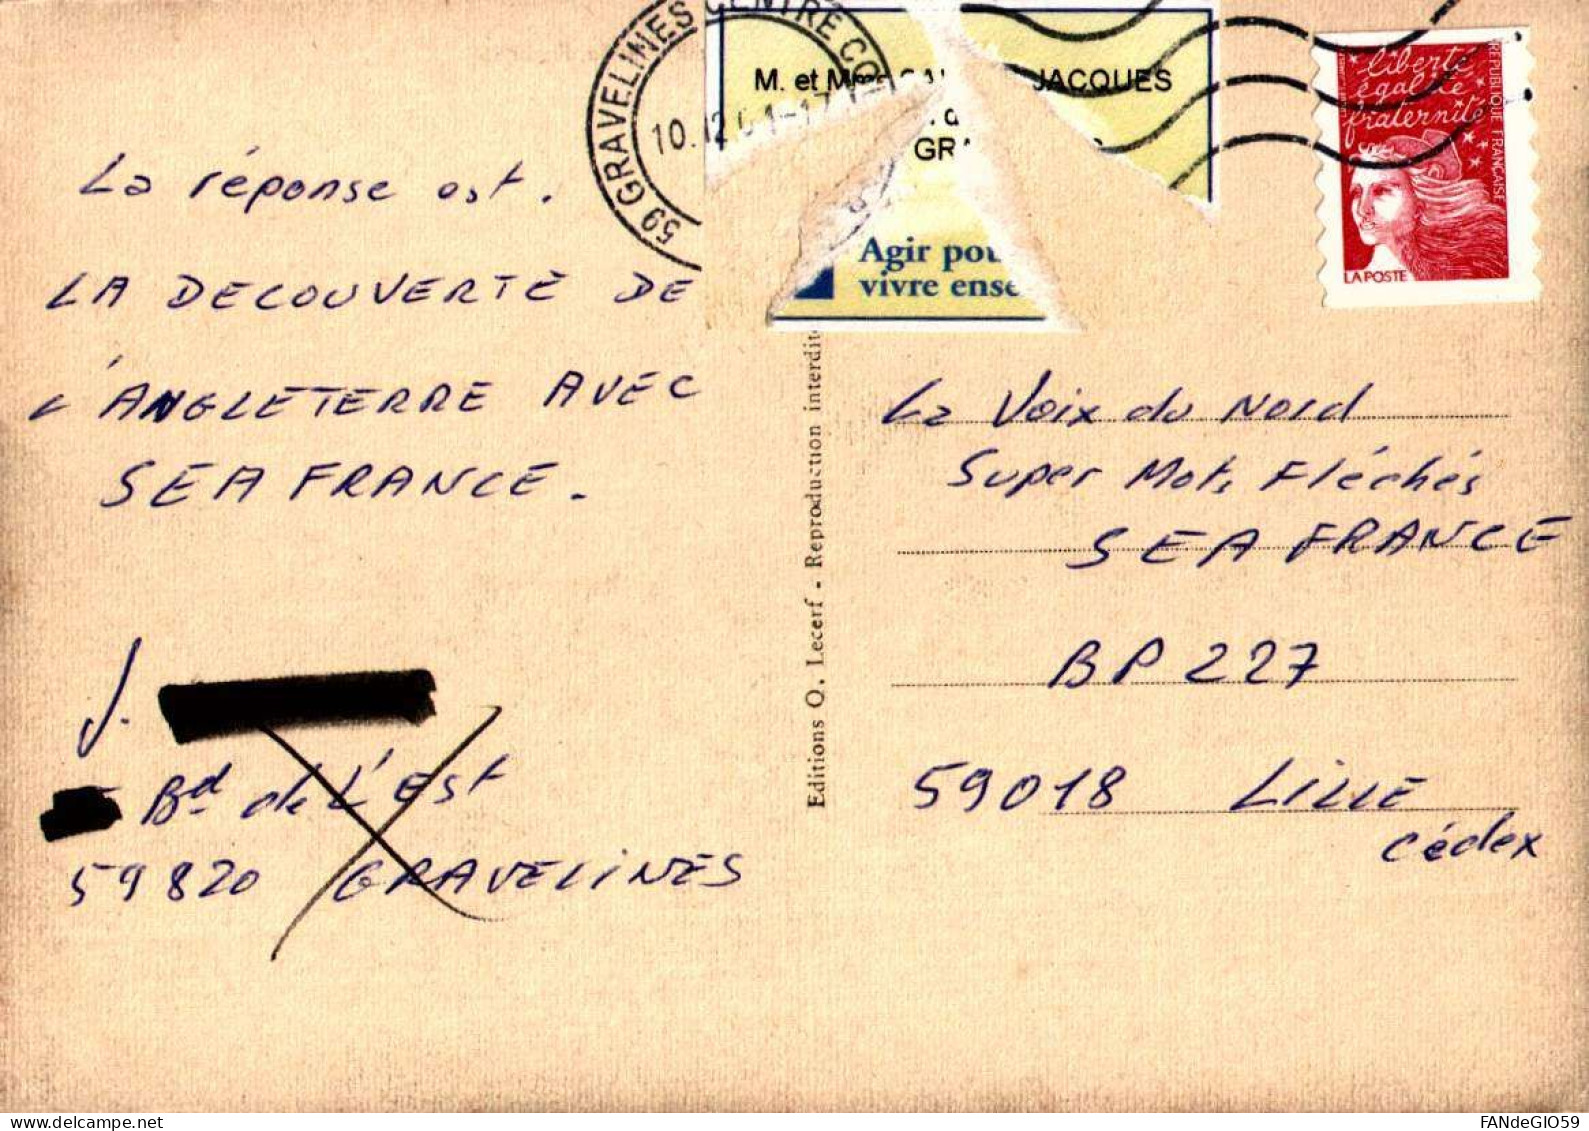 59 GRAVELINES CENTRE
10.12.01-17
M. et Mme JACQUES
Agir
vivre
liberté
égalité
fraternité
REPUBLIQUE FRANÇAISE
LA POSTE
La réponse est.
LA DECOUVERTE DE
L'ANGLETERRE AVEC
SEA FRANCE.
J.
Bd de L'Est
59820 GRAVELINES
Editions O. Lecerf - Reproduction interdite
La Voix du Nord
Super Mots Fléchés
SEA FRANCE
BP 227
59018 LILLE
Cédex
FANdeGIO59